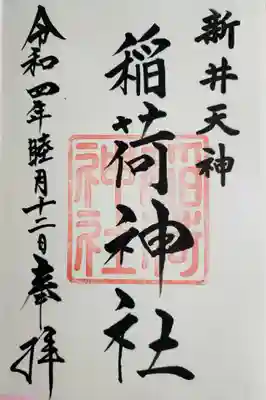 新井天神
稲荷神社
稲荷神社
令和四年睦月十二日奉拝